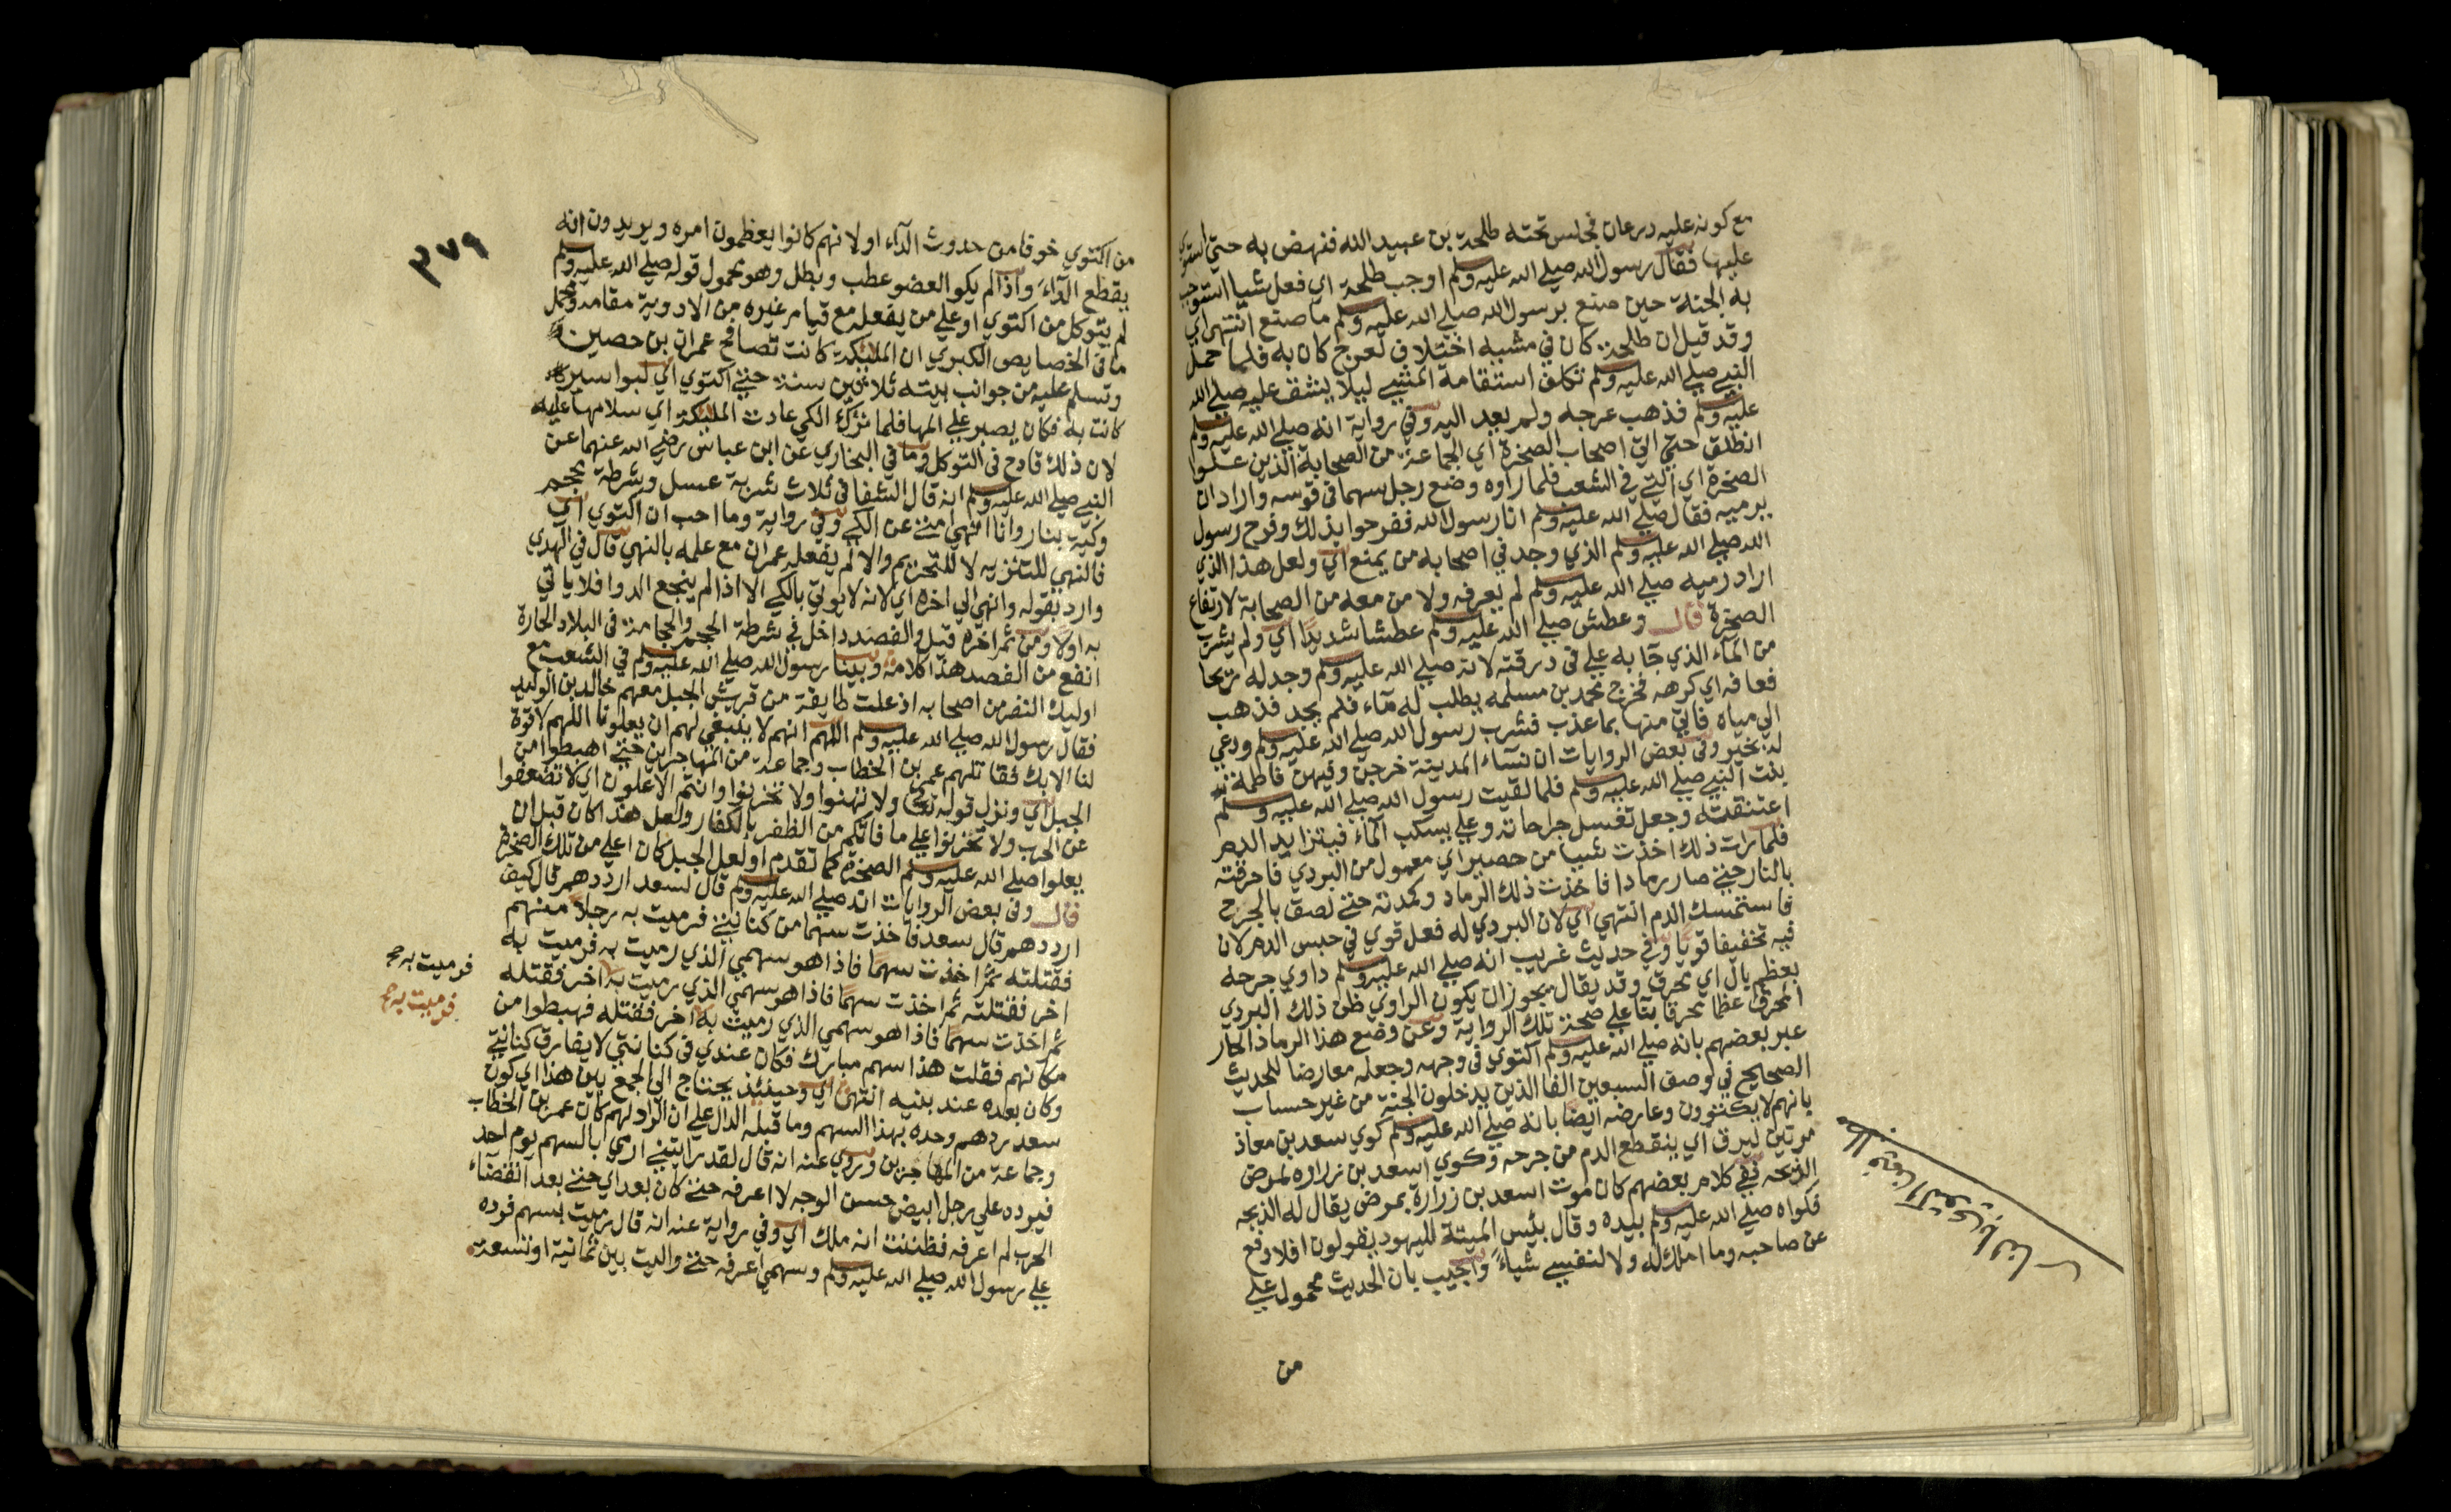 مع كونه عليه درعان فجلس تحته طلحة بن عبيد الله فنهض به حتي استوي
عليها فقال رسول الله صلي الله عليه وسلم اوجب طلحة اي فعل شيا استوجب
به الجنة حين صنع برسول الله صلي الله عليه وسلم ما صنع انتهي اي
وقد قيل ان طلحة كان في مشيه اختلاف لعرج كان به فلما حمل
النبي صلي الله عليه وسلم تكلف استقامة المشي ليلا يشق عليه صلي الله
عليه وسلم فذهب عرجه ولم يعد اليه وفي رواية انه صلي الله عليه وسلم
انطلق حتي اتي اصحاب الصخرة اي الجماعة من الصحابة الذين علوا
الصخرة اي التي في الشعب فلما راوه وضع رجل سهما في قوسه واراد ان
يرميه فقال صلي الله عليه وسلم انا رسول الله ففرحوا بذلك وفرح رسول
الله صلي الله عليه وسلم الذي وجد في اصحابه من يمنع اي ولعل هذا الذي
اراد رميه صلي الله عليه وسلم لم يعرفه ولا من معه من الصحابة لارتفاع
الصخرة قال وعطش صلي الله عليه وسلم عطشا شديدا اي ولم يشرب
من الماء الذي جآ به علي في درقته لانه صلي الله عليه وسلم وجد له ريحا
فعافه اي كرهه فخرج محمد بن مسلمه يطلب له مآء فلم يجد فذهب
الي مياه فاتي منها بما عذب فشرب رسول الله صلي الله عليه وسلم ودعي
له بخير وفي بعض الروايات ان نسآء المدينة خرجن وفيهن فاطمة
بنت النبي صلي الله عليه وسلم فلما لقيت رسول الله صلي الله عليه وسلم
اعتنقته وجعل تغسل جراحاته وعلي يسكب المآء فيتزايد الدم
فلما رات ذلك اخذت شيا من حصير اي معمول من البردي فاحرقته
بالنار حتي صار رمادا فاخذت ذلك الرماد وكمدته حتي لصق بالجرح
فاستمسك الدم انتهي اي لان البردي له فعل قوي في حبس الدم لان
فيه تجفيفا قويا وفي حديث غريب انه صلي الله عليه وسلم داوي جرحه
بعظم بال اي محرق وقد يقال يجوز ان يكون الراوي ظن ذلك البردي
المحرق عظما محرقا بنآ علي صحة تلك الرواية وعن وضع هذا الرماد الحار
عبر بعضهم بانه صلي الله عليه وسلم اكتوي في وجهه وجعله معارضا للحديث
الصحيح في وصف السبعين الفا الذين يدخلون الجنة من غير حساب
بانهم لا يكتوون وعارضه ايضا بانه صلي الله عليه وسلم كوي سعد بن معاذ
مرتين ليرق اي ينقطع الدم من جرحه وكوي اسعد بن زراره لمرض
الذبحه ففي كلام بعضهم كان موت اسعد بن زرارة بمرض يقال له الذبحه
فكواه صلي الله عليه وسلم بيده وقال بئس الميتة لليهود يقولون افلا دفع
عن صاحبه وما املك له ولا لنفسي شياً واجيب بان الحديث محمول علي
من
٣٧٩
من اكتوي خوفا من حدوث الدآء او لانهم كانوا يعظمون امره ويريدون انه
يقطع الدآء واذا لم يكو العضو عطب وبطل وهو محمول قوله صلي الله عليه وسلم
لم يتوكل من اكتوي او علي من يفعله مع قيام غيره من الادوية مقامه ومحمل
ما في الخصايص الكبري ان المليكة كانت تصافح عمران بن حصين
وتسلم عليه من جوانب بيته ثلاثين سنة حتي اكتوي اي لبواسير
كانت به فكان يصبر علي المها فلما ترك الكي عادت المليكة اي سلامها عليه
لان ذلك قادح في التوكل وما في البخاري عن ابن عباس رضي الله عنهما عن
النبي صلي الله عليه وسلم انه قال الشفا في ثلاث شربة عسل وشرطة محجم
وكية بنار وانا انهي امتي عن الكي وفي رواية وما احب ان اكتوي اي
فالنهي للتنزيه لا للتحريم والا لم يفعله عمران مع علمه بالنهي قال في الهدي
واراد بقوله وانهي الي اخره اي لانه لا يوتي بالكي الا اذا لم ينجع الدوا فلا ياتي
به اولا ومن ثم اخره قيل والفصد داخل في شرطة المحجم والحجامة في البلاد الحارة
انفع من الفصد هذا كلامه وبينا رسول الله صلي الله عليه وسلم في الشعب مع
اوليك النفر من اصحابه اذ علت طايفة من قريش الجبل معهم خالد بن الوليد
فقال رسول الله صلي الله عليه وسلم اللهم انهم لا ينبغي لهم ان يعلونا اللهم لا قوة
لنا الا بك فقاتلهم عمر بن الخطاب وجماعة من المهاجرين حتي اهبطوا من
الجبل اي ونزل قوله تعالي ولا تهنوا ولا تحزنوا وانتم الاعلون اي لا تضعفوا
عن الحرب ولا تحزنوا علي ما فاتكم من الظفر بالكفار ولعل هذا كان قبل ان
يعلوا صلي الله عليه وسلم الصخرة كما تقدم او لعل الجبل كان اعلي من تلك الصخرة
قال وفي بعض الروايات انه صلي الله عليه وسلم قال لسعد ارددهم قال كيف
ارددهم قال سعد فاخذت سهما من كنانتي فرميت به رجلا منهم
فقتلته ثم اخذت سهما فاذا هو سهمي الذي رميت به فرميت به
اخر فقتلته ثم اخذت سهما فاذا هو سهمي الذي رميت به اخر فقتلته
ثم اخذت سهما فاذا هو سهمي الذي رميت به اخر فقتلته فهبطوا من
مكانهم فقلت هذا سهم مبارك فكان عندي في كنانتي لا يفارق كنانتي
وكان بعده عند بنيه انتهي اي وحينئذ يحتاج الي الجمع بين هذا اي كون
سعد ردهم وحده بهذا السهم وما قبله الدال علي ان الراد لهم كان عمر بن الخطاب
وجماعة من المهاجرين وروي عنه انه قال لقد رايتني ارمي بالسهم يوم احد
فيرده علي رجل ابيض حسن الوجه لا اعرفه حتي كان بعد اي حتي بعد انقضآء
الحرب لم اعرفه فظننت انه ملك اي وفي رواية عنه انه قال رميت بسهم فرده
علي رسول الله صلي الله عليه وسلم وسهمي اعرفه حتي واليت بين ثمانية او تسعة
فرميت به صح
فرميت به صح